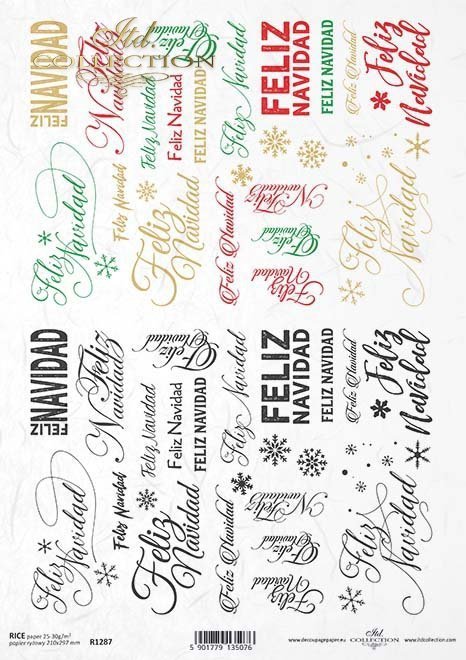 Itd.
COLLECTION
FELIZ
NAVIDAD
Feliz
Navidad
Feliz
Navidad
Feliz Navidad
Feliz Navidad
FELIZ NAVIDAD
Feliz Navidad
FELIZ
NAVIDAD
FELIZ NAVIDAD
Feliz Navidad
Feliz
Navidad
Feliz
Navidad
Feliz Navidad
Feliz
Navidad
Feliz Navidad
Feliz
Navidad
Feliz
Navidad
Feliz
Navidad
Feliz
Navidad
FELIZ
NAVIDAD
Feliz
Navidad
Feliz
Navidad
Feliz Navidad
Feliz Navidad
FELIZ NAVIDAD
Feliz Navidad
FELIZ
NAVIDAD
FELIZ NAVIDAD
Feliz Navidad
Feliz
Navidad
Feliz
Navidad
Feliz Navidad
Feliz
Navidad
Feliz Navidad
Feliz
Navidad
Feliz
Navidad
Feliz
Navidad
Feliz
Navidad
RICE paper 25-30g/m²
papier ryżowy 210x297 mm
R1287
5 901779 135076
www.decoupagepaper.eu
Itd.
COLLECTION
www.itdcollection.com